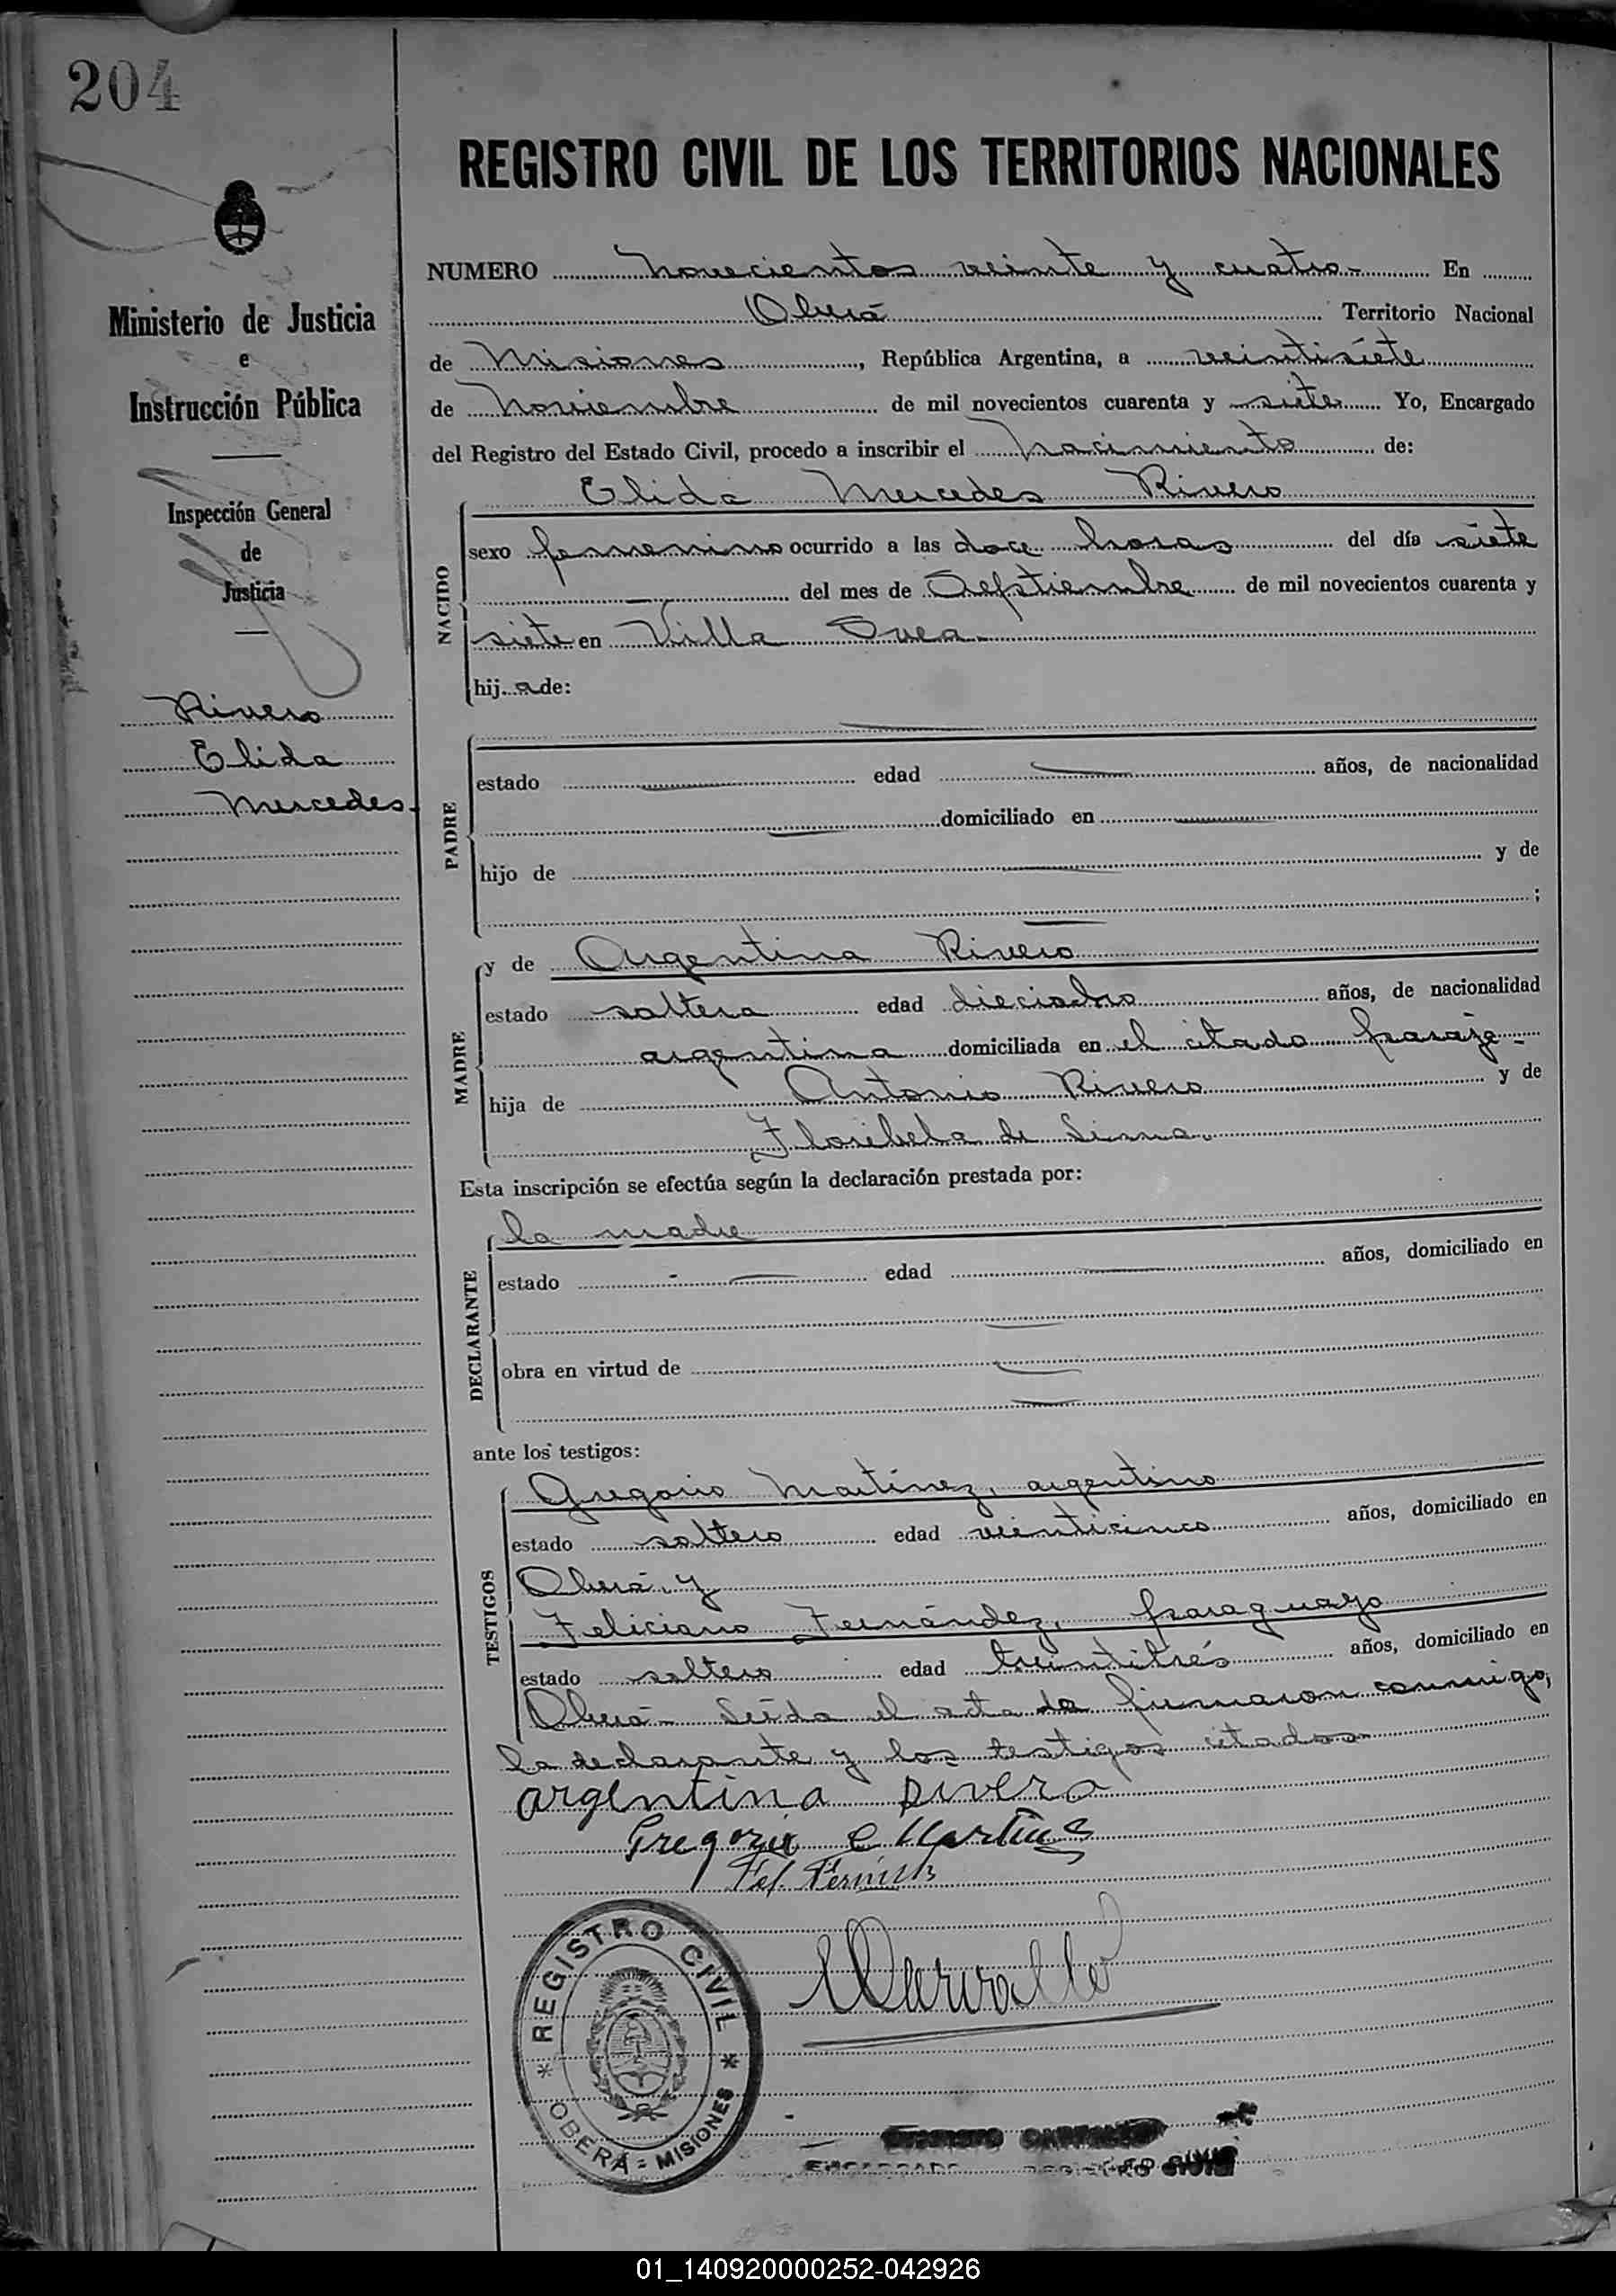 204
REGISTRO CIVIL DE LOS TERRITORIOS NACIONALES
Ministerio de Justicia
e
Instrucción Pública
Inspección General
de
Justicia
Rivero
Elida
Mercedes.
NUMERO novecientos veinte y cuatro.- En
Oberá Territorio Nacional
de Misiones, República Argentina, a veintisiete
de Noviembre de mil novecientos cuarenta y siete Yo, Encargado
del Registro del Estado Civil, procedo a inscribir el nacimiento de:
Elida Mercedes Rivero
NACIDO
sexo femenino ocurrido a las doce horas del día siete
del mes de Septiembre de mil novecientos cuarenta y
siete en Villa
hija de:
PADRE
estado edad años, de nacionalidad
domiciliado en
hijo de y de
;
MADRE
y de Argentina Rivero
estado soltera edad dieciocho años, de nacionalidad
argentina domiciliada en el citado paraje-
hija de Antonio Rivero y de
de
Esta inscripción se efectúa según la declaración prestada por:
DECLARANTE
la madre
estado edad años, domiciliado en
obra en virtud de
ante los testigos:
TESTIGOS
Gregorio Martínez, argentino
estado soltero edad veinticinco años, domiciliado en
Oberá y
Feliciano Fernández, paraguayo
estado soltero edad treintitrés años, domiciliado en
Oberá- Leída el acta la firmaron conmigo,
la declarante y los testigos citados-
argentina rivero
Gregorio C Martinez
REGISTRO CIVIL
OBERÁ = MISIONES
ENCARGADO REGISTRO CIVIL
01_140920000252-042926